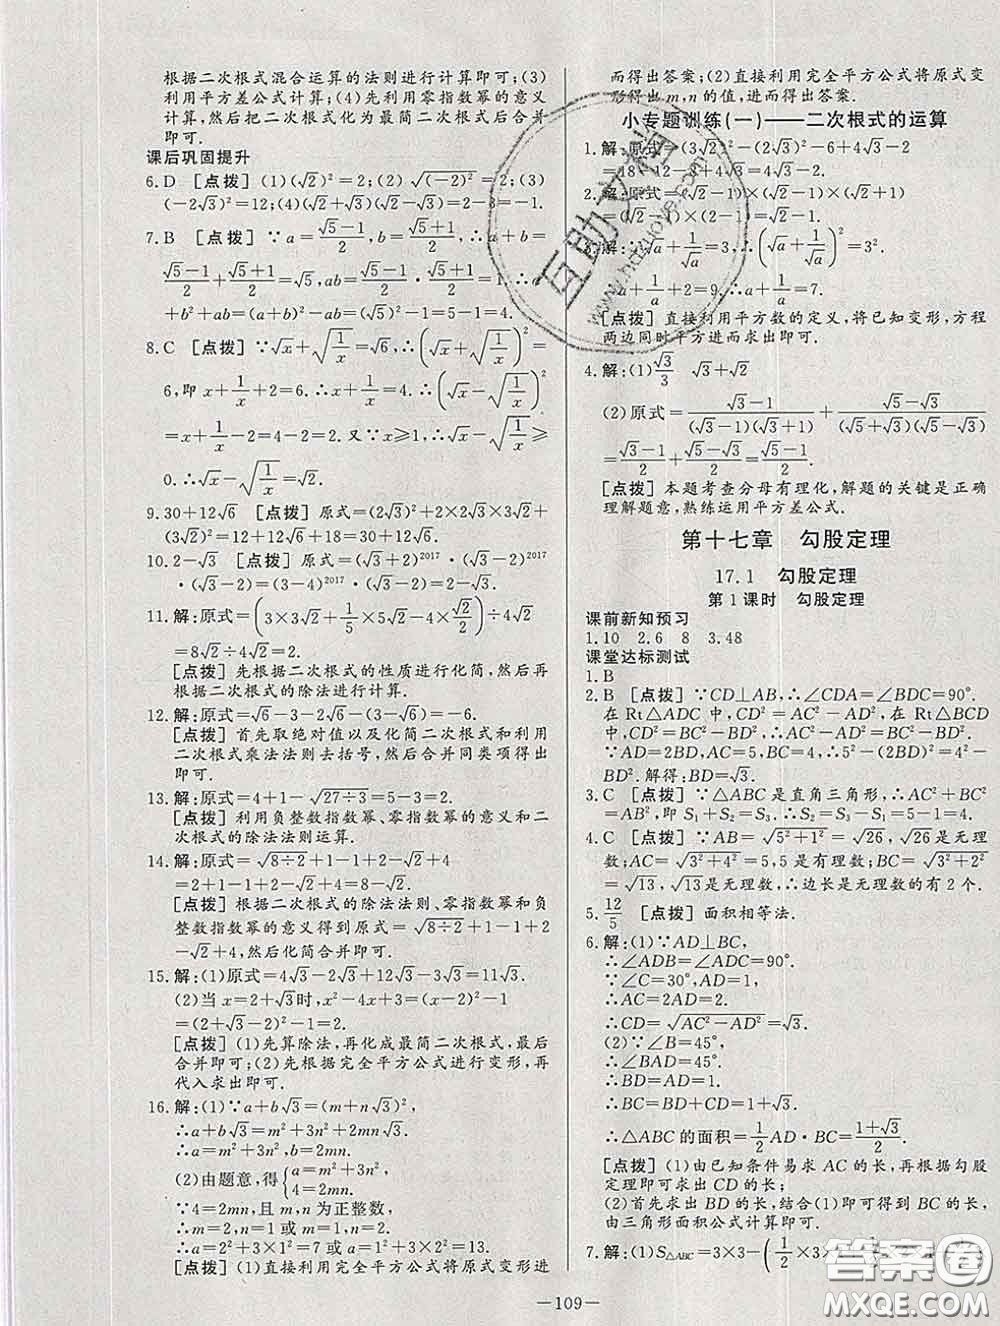 根据二次根式混合运算的法则进行计算即可;(3)
利用平方差公式计算;(4)先利用零指数幂的意义
计算,然后把二次根式化为最简二次根式后合并
即可.
课后巩固提升
6.D [点拨] (1)(√2)²=2;(2)√(-2)²=2;(3)
(-2√3)²=12;(4)(√2+√3)(√2-√3)=2-3=-1.
7.B [点拨] ∵a=(√5-1)/2,b=(√5+1)/2,∴a+b=
(√5-1)/2+(√5+1)/2=√5,ab=(√5-1)/2×(√5+1)/2=1.∴a²
+b²+ab=(a+b)²-ab=(√5)²-1=5-1=4.
8.C [点拨] ∵√x+√(1/x)=√6,∴(√x+√(1/x))²=
6,即x+1/x+2=6.∴x+1/x=4.∴(√x-√(1/x))²
=x+1/x-2=4-2=2.又∵x≥1,∴√x-√(1/x)≥
0.∴√x-√(1/x)=√2.
9.30+12√6 [点拨] 原式=(2√3)²+2×2√3×3√2+
(3√2)²=12+12√6+18=30+12√6.
10.2-√3 [点拨] 原式=(√3+2)²⁰¹⁷·(√3-2)²⁰¹⁷
·(√3-2)=(3-4)²⁰¹⁷·(√3-2)=2-√3.
11.解:原式=(3×3√2+1/5×5√2-4×√2/2)÷4√2=
8√2÷4√2=2.
[点拨] 先根据二次根式的性质进行化简,然后再
根据二次根式的除法进行计算.
12.解:原式=√6-3-2√6-(3-√6)=-6.
[点拨] 首先取绝对值以及化简二次根式和利用
二次根式乘法法则去括号,然后合并同类项得出
即可.
13.解:原式=4+1-√(27÷3)=5-3=2.
[点拨] 利用负整数指数幂、零指数幂的意义和二
次根式的除法法则运算.
14.解:原式=√(8÷2)+1-1+2-√2+4
=2+1-1+2-√2+4=8-√2.
[点拨] 根据二次根式的除法法则、零指数幂和负
整数指数幂的意义得到原式=√(8÷2)+1-1+2
-√2+4,然后化简合并即可.
15.解:(1)原式=4√3-2√3-12√3=11√3.
(2)当x=2+√3时,x²-4x+2=(x-2)²-2
=(2+√3-2)²-2=1.
[点拨] (1)先算除法,再化成最简二次根式,最后
合并即可;(2)先根据完全平方公式进行变形,再
代入求出即可.
16.解:(1)∵a+b√3=(m+n√3)²,
∴a+b√3=m²+3n²+2mn√3.
∴a=m²+3n²,b=2mn.
(2)由题意,得{a=m²+3n²,4=2mn.
∵4=2mn,且m,n为正整数,
∴m=2,n=1或m=1,n=2.
∴a=2²+3×1²=7或a=1²+3×2²=13.
[点拨] (1)直接利用完全平方公式将原式变形进
而得出答案;(2)直接利用完全平方公式将原式变
形得出m,n的值,进而得出答案.
小专题训练(一)——二次根式的运算
1.解:原式=(3√2)²-(2√3)²-6+4√3-2
=18-12-6+4√3-2=4√3-2.
2.解:原式=(√2-1)×(√2-1)×(√2+1)
=(√2-1)×(2-1)=√2-1.
3.解:∵√a+1/√a=3,∴(√a+1/√a)²=3².
∴a+1/a+2=9.∴a+1/a=7.
[点拨] 直接利用平方数的定义,将已知变形,方程
两边同时平方进而求出即可.
4.解:(1)√3/3 √3+√2
(2)原式=(√3-1)/((√3-1)(√3+1))+(√5-√3)/((√5+√3)(√5-√3))
=(√3-1)/2+(√5-√3)/2=(√5-1)/2.
[点拨] 本题考查分母有理化,解题的关键是正确
理解题意,熟练运用平方差公式.
第十七章 勾股定理
17.1 勾股定理
第1课时 勾股定理
课前新知预习
1.10 2.6 8 3.48
课堂达标测试
1.B
2.B [点拨] ∵CD⊥AB,∴∠CDA=∠BDC=90°.
在Rt△ADC中,CD²=AC²-AD²,在Rt△BCD
中,CD²=BC²-BD²,∴AC²-AD²=BC²-BD².
∵AD=2BD,AC=5,BC=4,∴5²-(2BD)²=4²-
BD².解得:BD=√3.
3.C [点拨] ∵△ABC是直角三角形,∴AC²+BC²
=AB²,即S₁+S₂=S₃.∴S₂=S₃-S₁=5-1=4.
4.C [点拨] ∵AB=√(5²+1²)=√26,√26是无理
数;AC=√(3²+4²)=5,5是有理数;BC=√(3²+2²)
=√13,√13是无理数;∴边长是无理数的有2个.
5.12/5 [点拨] 面积相等法.
6.解:(1)∵AD⊥BC,
∴∠ADB=∠ADC=90°.
∵∠C=30°,AD=1,
∴AC=2AD=2.
∴CD=√(AC²-AD²)=√3.
(2)∵∠B=45°,
∴∠BAD=45°.
∴BD=AD=1.
∴BC=BD+CD=1+√3.
∴△ABC的面积=1/2AD·BC=(1+√3)/2.
[点拨] (1)由已知条件易求AC的长,再根据勾股
定理即可求出CD的长;
(2)首先求出BD的长,结合(1)即可得到BC的长,
由三角形面积公式计算即可.
7.解:(1)S△ABC=3×3-(1/2×3×
—109—
互助文档
www.hdzuoye.com
答案圈
MXQE.COM